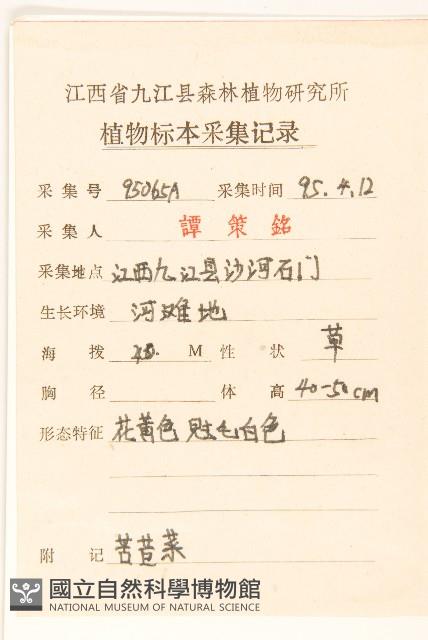 江西省九江县森林植物研究所
植物标本采集记录
采集号 95065A 采集时间 95.4.12
采集人 譚策銘
采集地点 江西九江县沙河石门
生长环境 河难地
海拨 M 性状 草
胸径 体高 40-50cm
形态特征 花黄色 毛白色
附记 苦苣菜
國立自然科學博物館
NATIONAL MUSEUM OF NATURAL SCIENCE